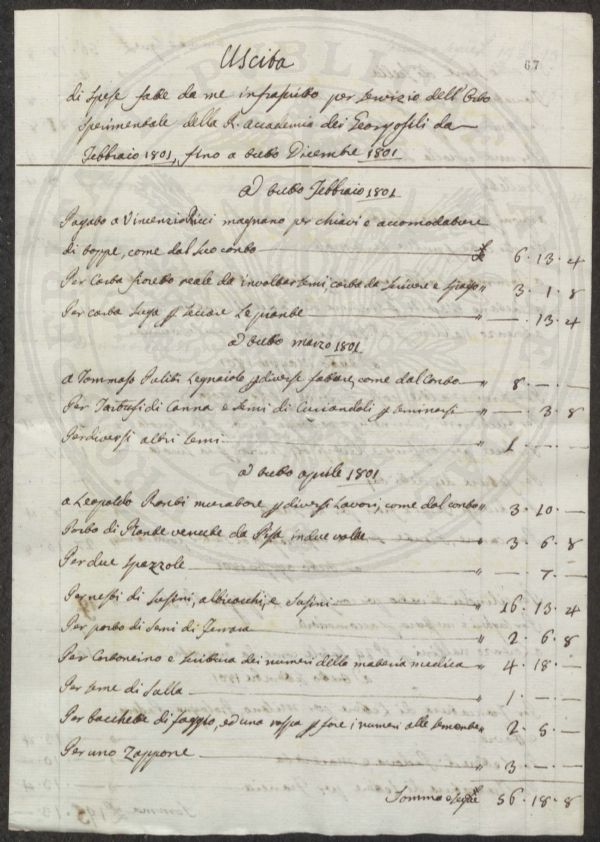 67
Uscita
di Spese fatte da me infrascritto per servizio dell' Orto
Sperimentale della R. accademia dei Georgofili da
Febbraio 1801, fino a tutto Dicembre 1801
a tutto Febbraio 1801
Pagato a Vincenzio Ricci magnano per chiavi e accomodature
di toppe, come dal suo conto £ 6. 13. 4
Per Carta fioretto reale da involtar semi, carta da scrivere e spago " 3. 1. 8
Per carta suga p seccare le piante " —. 13. 4
a tutto marzo 1801
a Tommaso Puliti Legnaiolo p diverse fatture, come dal Conto " 8. —. —
Per Tartufi di Canna e semi di p seminarsi " —. 3. 8
Per diversi altri semi " 1. —. —
a tutto aprile 1801
a Leopoldo muratore p diversi Lavori, come dal conto " 3. 10. —
Porto di Piante venute da Pisa in due volte " 3. 6. 8
Per due Spazzole " —. 7. —
Per nesti di Susini, albicocchi, e Susini " 16. 13. 4
Per porto di Semi di " 2. 6. 8
Per Cartoncino e scrittura dei numeri della materia medica " 4. 18. —
Per seme di Sulla " 1. —. —
Per bacchette di faggio, ed una raspa p fare i numeri alle semente " 2. 5. —
Per uno Zappone " 3. —. —
Somma e segue £ 56. 18. 8